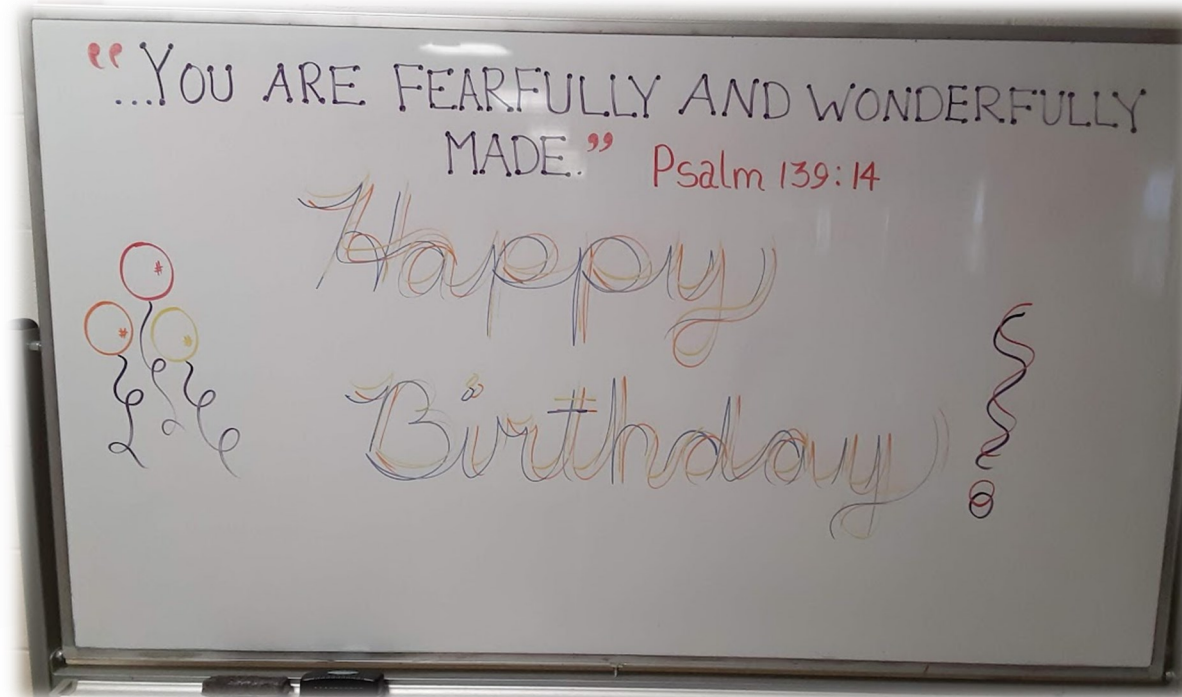 “...YOU ARE FEARFULLY AND WONDERFULLY
MADE.” Psalm 139:14
Happy
Birthday